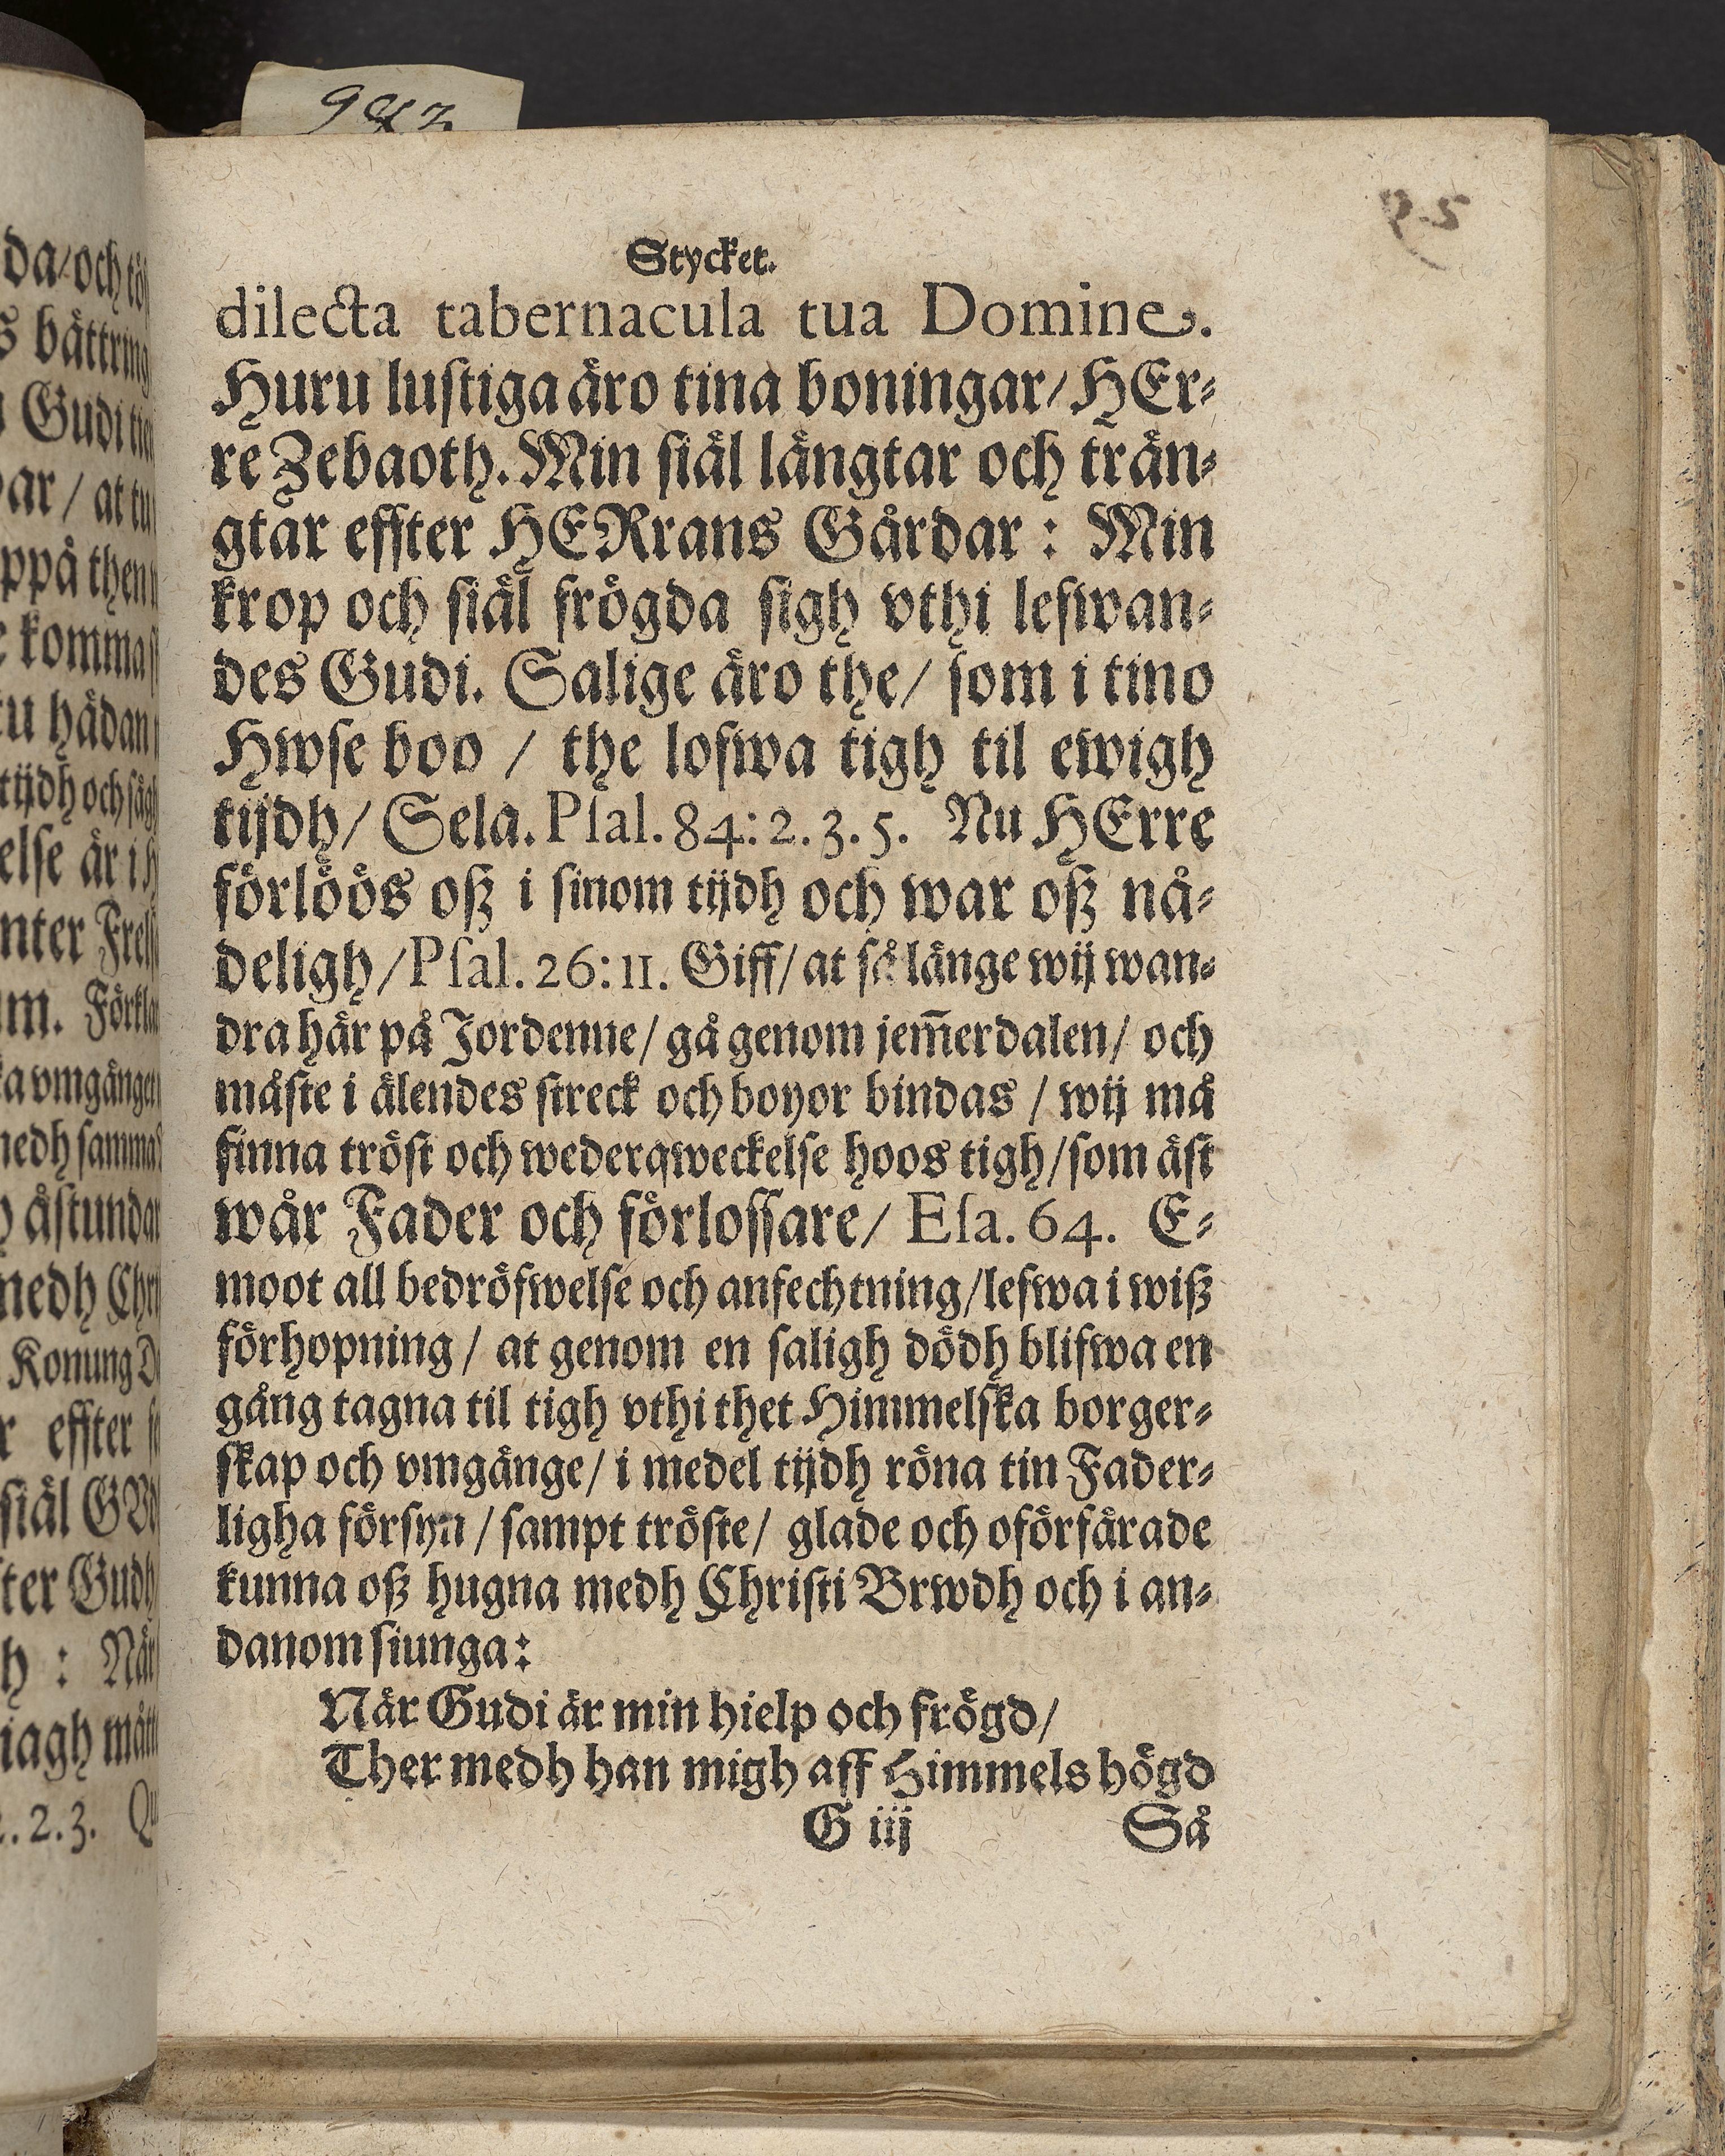 da/och
s bättring
Gudi
ar / at tu
ppå then
komma
tu hädan
tijdh och
else är i
nter
m. Förkla
vmgänget
medh samma
åstundar
medh Chri
Konung
effter
siäl
ter Gudh
h : När
iagh
.2.3.
9
Stycket.
dilecta tabernacula tua Domine.
Huru lustiga äro tina boningar/ HEr⸗
re Zebaoth. Min siäl längtar och trän⸗
gtar effter HERrans Gårdar : Min
krop och siäl frögda sigh vthi lefwan⸗
des Gudi. Salige äro the/ som i tino
Hwse boo / the lofwa tigh til ewigh
tijdh/ Sela. Psal. 84: 2. 3. 5. Nu HErre
förlöös oß i sinom tijdh och war oß nå⸗
deligh/ Psal. 26: 11. Giff/ at så länge wij wan⸗
dra här på Jordenne/ gå genom jem̃erdalen/ och
måste i älendes streck och boyor bindas / wij må
finna tröst och wederqweckelse hoos tigh/ som äst
wår Fader och förlossare/ Esa. 64. E⸗
moot all bedröfwelse och anfechtning/ lefwa i wiß
förhopning / at genom en saligh dödh blifwa en
gång tagna til tigh vthi thet Himmelska borger⸗
skap och vmgänge/ i medel tijdh röna tin Fader⸗
ligha försyn / sampt tröste/ glade och oförfärade
kunna oß hugna medh Christi Brwdh och i an⸗
danom siunga:
När Gudi är min hielp och frögd/
Ther medh han migh aff Himmels högd
G iij Så